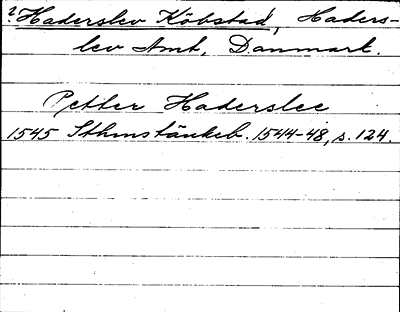 ? Haderslev Köbstad, Haders-
lev Amt, Danmark.
Petter Haderslee
1545 Sthmstänkeb. 1544-48, s. 124.